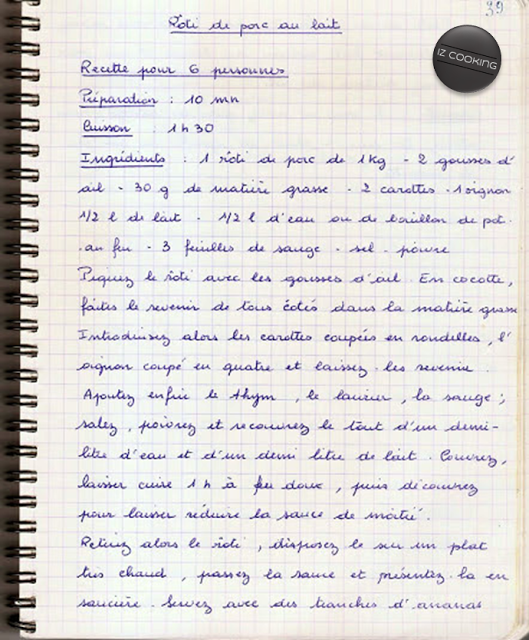 39
IZ COOKING
Rôti de porc au lait
Recette pour 6 personnes
Préparation : 10 mn
Cuisson : 1 h 30
Ingrédients : 1 rôti de porc de 1kg - 2 gousses d'
ail - 30 g de matière grasse - 2 carottes - 1 oignon
1/2 l de lait - 1/2 l d'eau ou de bouillon de pot-
-au feu - 3 feuilles de sauge - sel - poivre
Piquez le rôti avec les gousses d'ail. En cocotte,
faites le revenir de tous côtés dans la matière grasse
Introduisez alors les carottes coupées en rondelles, l'
oignon coupé en quatre et laissez-les revenir.
Ajoutez enfin le thym, le laurier, la sauge ;
salez, poivrez et recouvrez le tout d'un demi-
litre d'eau et d'un demi litre de lait. Couvrez,
laisser cuire 1 h à feu doux, puis découvrez
pour laisser réduire la sauce de moitié.
Retirez alors le rôti, disposez le sur un plat
très chaud, passez la sauce et présentez-la en
saucière. Servez avec des tranches d'ananas